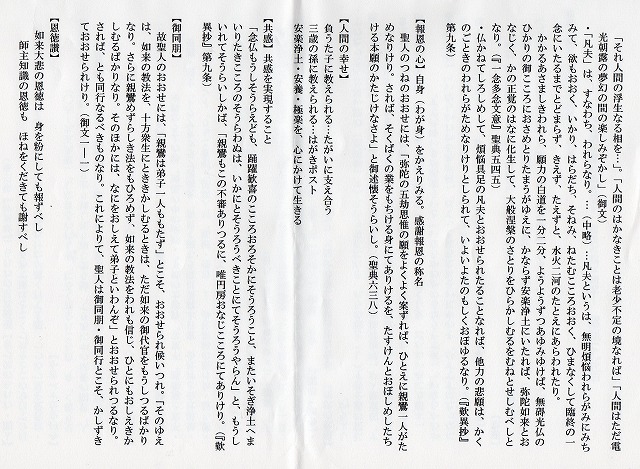 「それ人間の浮生なる相を…」「人間のはかなきことは老少不定の境なれば」「人間はただ電
光朝露の夢幻の間の楽しみぞかし」（御文）
「凡夫」は、すなわち、われらなり。…（中略）…凡夫というは、無明煩悩われらがみにみち
みて、欲もおおく、いかり、はらだち、そねみ、ねたむこころおおく、ひまなくして臨終の一
念にいたるまでとどまらず、きえず、たえずと、水火二河のたとえにあらわれたり。
かかるあさましきわれら、願力の白道を一分二分、ようようずつあゆみゆけば、無碍光仏の
ひかりの御こころにおさめとりたまうがゆえに、かならず安楽浄土にいたれば、弥陀如来とお
なじく、かの正覚のはなに化生して、大般涅槃のさとりをひらかしむるをむねとせしむべしと
なり。（『一念多念文意』聖典五四五）
・仏かねてしろしめして、煩悩具足の凡夫とおおせられたることなれば、他力の悲願は、かく
のごときのわれらがためなりけりとしられて、いよいよたのもしくおぼゆるなり。（『歎異抄』
第九条）
【報恩の心】自身（わが身）をかえりみる。感謝報恩の称名
聖人のつねのおおせには、「弥陀の五劫思惟の願をよくよく案ずれば、ひとえに親鸞一人がた
めなりけり。されば、そくばくの業をもちける身にてありけるを、たすけんとおぼしめしたち
ける本願のかたじけなさよ」と御述懐そうらいし。（聖典六三八）
【人間の幸せ】
負うた子に教えられる…たがいに支え合う
三歳の孫に教えられる…はがきポスト
安楽浄土・安養・極楽を、心にかけて生きる
【共感】共感を実現すること
「念仏もうしそうらえども、踊躍歓喜のこころおろそかにそうろうこと、またいそぎ浄土へま
いりたきこころのそうらわぬは、いかにとそうろうべきことにてそうろうやらん」と、もうし
いれてそうらいしかば、「親鸞もこの不審ありつるに、唯円房おなじこころにてありけり。（『歎
異抄』第九条）
【御同朋】
故聖人のおおせには、「親鸞は弟子一人ももたず」とこそ、おおせられ候いつれ。「そのゆえ
は、如来の教法を、十方衆生にとききかしむるときは、ただ如来の御代官をもうしつるばかり
なり。さらに親鸞めずらしき法をもひろめず、如来の教法をわれも信じ、ひとにもおしえきか
しむるばかりなり。そのほかには、なにをおしえて弟子といわんぞ」とおおせられつるなり。
されば、とも同行なるべきものなり。これによりて、聖人は御同朋・御同行とこそ、かしずき
ておおせられけり。（御文一－一）
【恩徳讃】
如来大悲の恩徳は　身を粉にしても報ずべし
師主知識の恩徳も　ほねをくだきても謝すべし